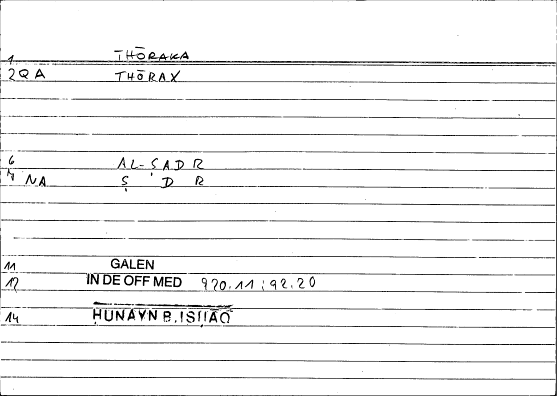 1 THŌRAKA
2 QA THŌRAX
6 AL-ṢADR
7 NA Ṣ D R
11 GALEN
12 IN DE OFF MED 970.11 ; 92.20
14 ḤUNAYN B. ISḤĀQ